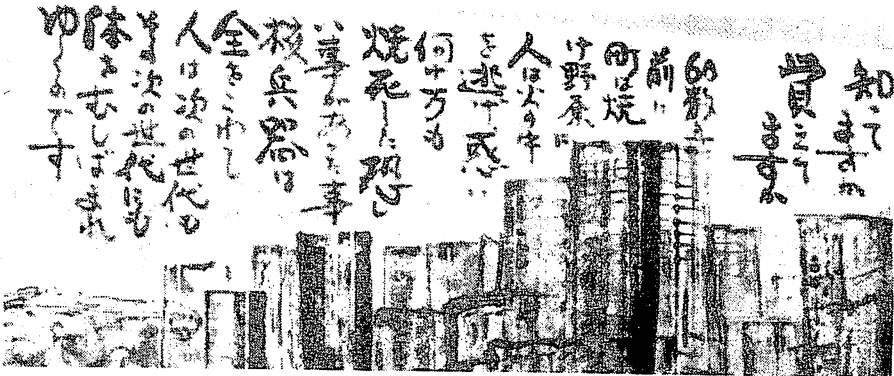 知って
ますか
覚えて
ますか
60数年
前に
町は焼
け野原に
人は火の中
を逃げ惑い
何十万も
焼死した恐し
い事があった事
核兵器は
全をこわし
人は次の世代も
その次の世代にも
体をむしばまれ
ゆくのです